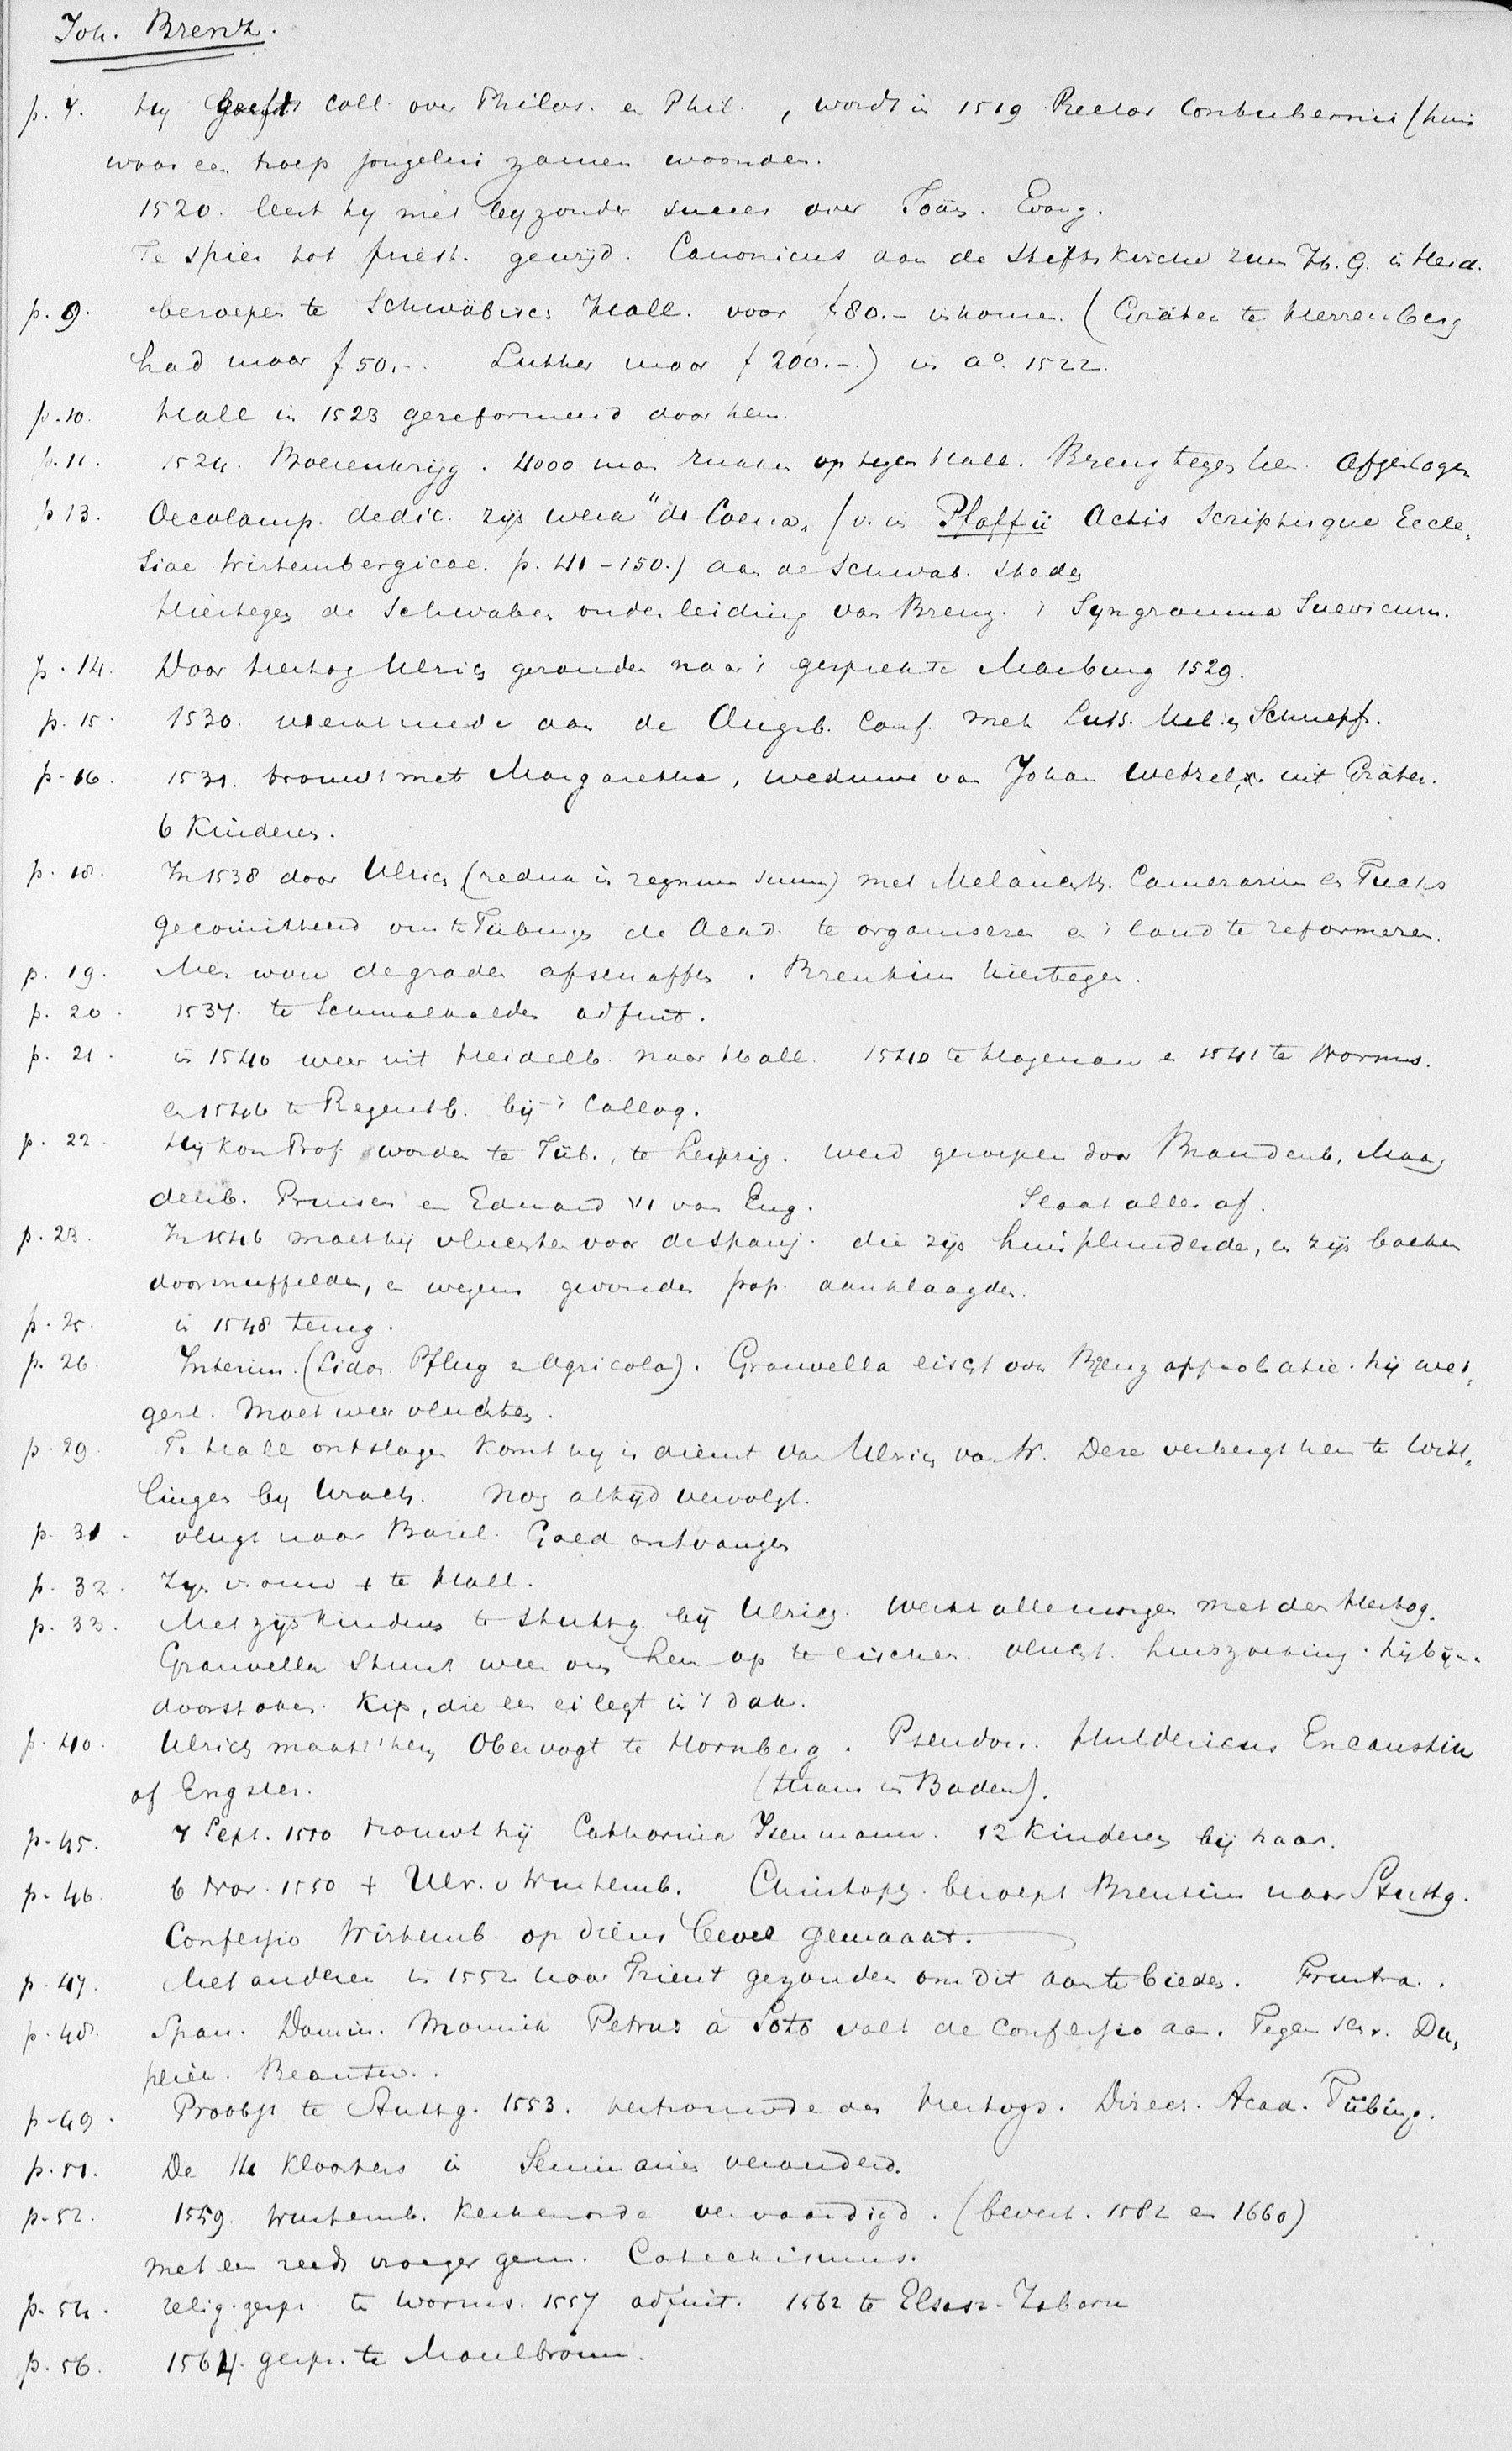 Joh. Brenz.
p. 4. Hij geeft coll. over Philos. en Phil., wordt in 1519 Rector Contubernii (huis
waar een troep jongelui zamen woonden.
1520. leest hij met byzonder succes over Joän. Evang.
Te Spier tot priest. gewijd. Canonicus aan de Stiftskirche zum H. G. in Heid.
p. 9. beroepen te Schwäbisch Hall. voor f 80.- inkomen. (Gräter te Herrenberg
had maar f 50.-. Luther maar f 200.-.) in ao. 1522.
p. 10. Hall in 1523 gereformeerd door hem.
p. 11. 1524. Boerenkrijg. 4000 man rukken op tegen Hall. Brenz tegen hen. Afgeslagen
p 13. Oecolamp. dedic. zijn werk "de Coena„ (v. in Pfaffii Actis Scriptisque Eccle„
siae Wirtembergicae. p. 41-150.) aan de Schwab. steden
Hiertegen de Schwaben onder leiding van Brenz. 't Syngramma Suevicum.
p. 14. Door Hertog Ulrich gezonden naar 't gesprek te Marburg 1529.
p. 15. 1530. werkt mede aan de Augsb. Conf. met Luth. Mel. en Schnepf.
p. 16. 1531. trouwt met Margaretha, weduwe van Johan Wetzel, uit Gräter.
6 Kinderen.
p. 18. In 1538 door Ulrich (redux in regnum suum) met Melanchth. Camerarius en Fuchs
gecommitteerd om te Tubingen de Acad. te organiseren en 't land te reformeren.
p. 19. Men wou de graden afschaffen. Brentius hiertegen.
p. 20. 1537. te Schmalkalden adfuit.
p. 21. in 1540 weer uit Heidelb. naar Hall. 1540 te Hagenau en 1541 te Worms.
en 1546 te Regensb. bij 't Colloq.
p. 22. Hij kon Prof. worden te Tüb., te Leipzig. werd geroepen door Brandenb., Maag
denb. Pruisen en Eduard VI van Eng. Slaat alles af.
p. 23. In 1546 moet hij vluchten voor de Spanj. die zijn huis plunderden, en zijn boeken
doorsnuffelden, en wegens gevonden pap. aanklaagden.
p. 25. in 1548 terug.
p. 26. Interim. (Sidon. Pflug en Agricola). Granvella eischt van Brenz approbatie. hij wei„
gert. Moet weer vluchten.
p. 29. Te Hall ontslagen komt hij in dienst van Ulrich van W. Deze verbergt hem te Witt„
lingen bij Urach. Nog altijd vervolgd.
p. 31. vlugt naar Basel. Goed ontvangen
p. 32. Zijn vrouw + te Hall.
p. 33. Met zijn kinderen te Stuttg. bij Ulrich. Werkt alle morgen met den Hertog.
Granvella stuurt weer om hem op te eischen. vlucht. huiszoeking. hij bijna
doorstoken. Kip, die een ei legt in 't dak.
p. 40. Ulrich maakt hem Obervogt te Hornberg. Pseudon. Huldericus Encaustius
of Engster. (thans in Baden).
p. 45. 7 Sept. 1550 trouwt hij Catharina Isenmann. 12 kinderen bij haar.
p. 46. 6 Nov. 1550 + Ulr. v Wurtemb. Christoph. beroept Brentius naar Stuttg.
Confessio Wirtemb. op diens bevel gemaakt.
p. 47. Met anderen in 1552 naar Trient gezonden om dit aan te bieden. Frustra.
p. 48. Span. Domin. Monnik Petrus à Soto valt de Confessio aan. Tegenschr. Du„
pliek. Beantw..
p. 49. Proobst te Stuttg. 1553. vertrouwde des Hertogs. Direct. Acad. Tübing.
p. 51. De 14 Kloosters in Seminaries veranderd.
p. 52. 1559. Wurtemb. Kerkenorde vervaardigd. (bevest. 1582 en 1660)
met een reeds vroeger gem. Catechismus.
p. 54. relig. gespr. te Worms. 1557 adfuit. 1562 te Elsasz-Zabern
p. 56. 1564. gespr. te Maulbronn.